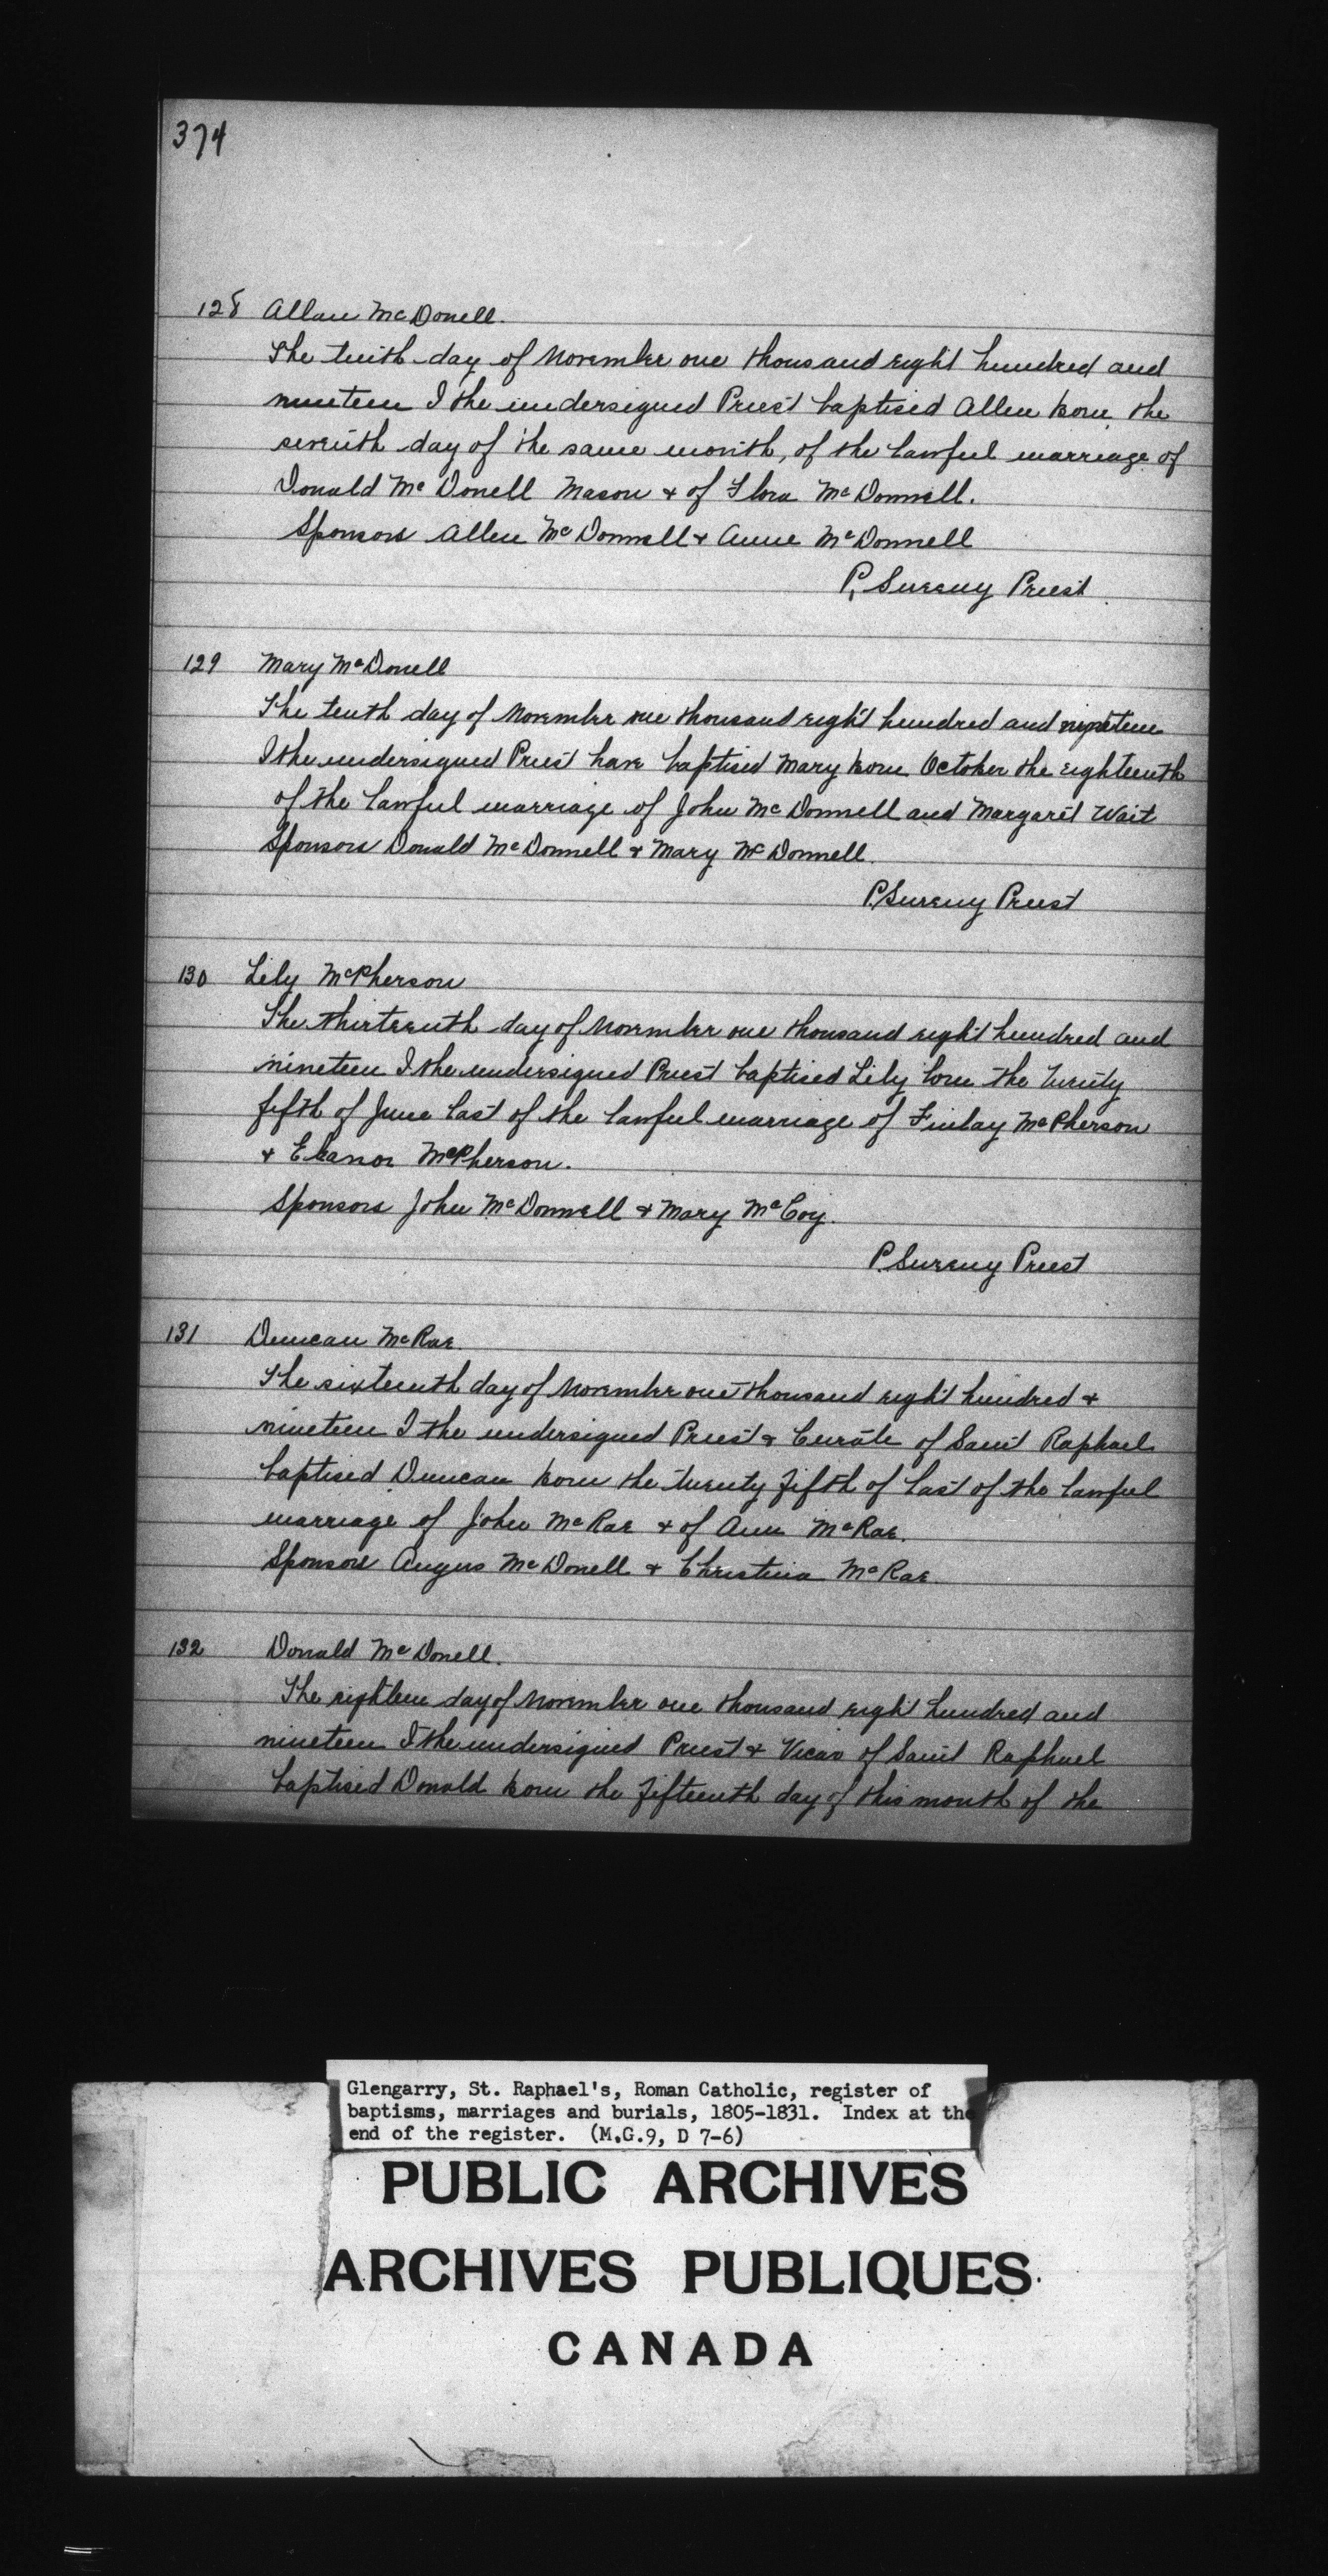 374
128 Allan McDonell.
The tenth day of November one thousand eight hundred and
nineteen I the undersigned Priest baptised Allen born the
seventh day of the same month, of the lawful marriage of
Donald McDonell Mason & of Flora McDonnell.
Sponsors Allen McDonnell & Anne McDonnell
P. Sweeny Priest.
129 Mary McDonell
The tenth day of November one thousand eight hundred and nineteen
I the undersigned Priest have baptised Mary born October the eighteenth
of the lawful marriage of John McDonnell and Margaret Wait
Sponsors Donald McDonnell & Mary McDonnell.
P. Sweeny Priest
130 Lily McPherson
The thirteenth day of November one thousand eight hundred and
nineteen I the undersigned Priest baptised Lily born the twenty
fifth of June last of the lawful marriage of Finlay McPherson
& Eleanor McPherson.
Sponsors John McDonnell & Mary McCoy.
P. Sweeny Priest
131 Duncan McRae.
The sixteenth day of November one thousand eight hundred &
nineteen I the undersigned Priest & Curate of Saint Raphael
baptised Duncan born the twenty fifth of last of the lawful
marriage of John McRae & of Ann McRae.
Sponsors Angus McDonell & Christina McRae.
132 Donald McDonell.
The eighteen day of November one thousand eight hundred and
nineteen I the undersigned Priest & Vicar of Saint Raphael
baptised Donald born the fifteenth day of this month of the
Glengarry, St. Raphael's, Roman Catholic, register of
baptisms, marriages and burials, 1805-1831. Index at the
end of the register. (M.G.9, D 7-6)
PUBLIC ARCHIVES
ARCHIVES PUBLIQUES
CANADA